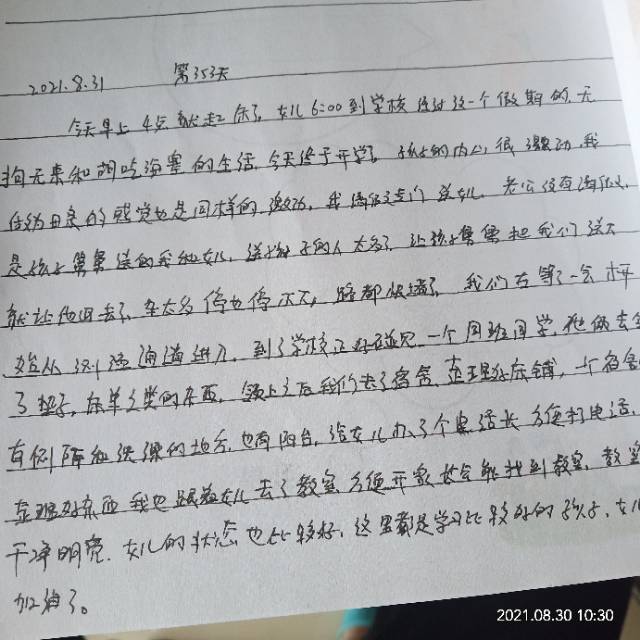 2021.8.31 第353天
今天早上4点就起床了 女儿6:00到学校 经过这一个假期的无
拘无束和胡吃海塞的生活 今天终于开学了 孩子的内心很激动 我
的感觉也是同样的激动 送女儿 老公没有
是孩子舅舅送的我和女儿 送孩子的人太多了 让孩子舅舅把我们送下
就让他回去了 车太多停也停不下 路都快堵了 我们右等了一会
始从 进入 到了学校正好碰见一个同班同学 他俩去
了 床单之类的东西 领上之后我们去了宿舍 整理好床铺 一个宿舍
有 的地方 也有阳台 给女儿办了个电话卡 方便打电话
整理好东西 我也跟着女儿去了教室 方便开家长会能找到教室 教室
干净明亮 女儿的状态也比较好 这里都是学习比较好的孩子 女儿
加油了。
2021.08.30 10:30